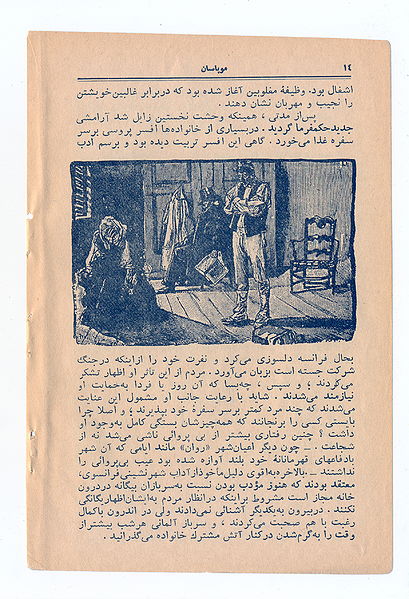 ۱٤
موپاسان
اشغال بود. وظیفهٔ مغلوبین آغاز شده بود که در برابر غالبین خویشتن
را نجیب و مهربان نشان دهند .
پس از مدتی ، همینکه وحشت نخستین زایل شد آرامشی
جدید حکمفرما گردید . در بسیاری از خانواده‌ها افسر پروسی بر سر
سفره غذا می‌خورد . گاهی این افسر تربیت دیده بود و برسم ادب
بحال فرانسه دلسوزی می‌کرد و نفرت خود را از اینکه در جنگ
شرکت جسته است بزبان می‌آورد . مردم از این تأثر او اظهار تشکر
می‌کردند ؛ و سپس ، چه‌بسا که آن روز یا فردا به‌حمایت او
نیازمند می‌شدند . شاید با رعایت جانب او مشمول این عنایت
می‌شدند که چند مرد کمتر بر سر سفرهٔ خود بپذیرند ؛ و اصلا چرا
بایستی کسی را برنجانند که همه‌چیزشان بستگی کامل به‌وجود او
داشت ؟ چنین رفتاری بیشتر از بی پروائی ناشی می‌شد نه از
شجاعت . ـ چون دیگر اعیان‌شهر «روان» مانند ایامی که آن شهر
بادفاعهای قهرمانانهٔ خود بلند آوازه شده بود عیب بی‌پروائی را
نداشتند ـ بالاخره به‌اقوی دلیل ماخوذ از آداب شهرنشینی فرانسوی،
معتقد بودند که هنوز مؤدب بودن نسبت به‌سربازان بیگانه در درون
خانه مجاز است مشروط بر اینکه در انظار مردم به‌ایشان اظهار یگانگی
نکنند . در بیرون به‌یکدیگر آشنائی نمی‌دادند ولی در اندرون با کمال
رغبت با هم صحبت می‌کردند ، و سرباز آلمانی هر شب بیشتر از
وقت را به‌گرم‌شدن در کنار آتش مشترك خانواده می‌گذرانید .